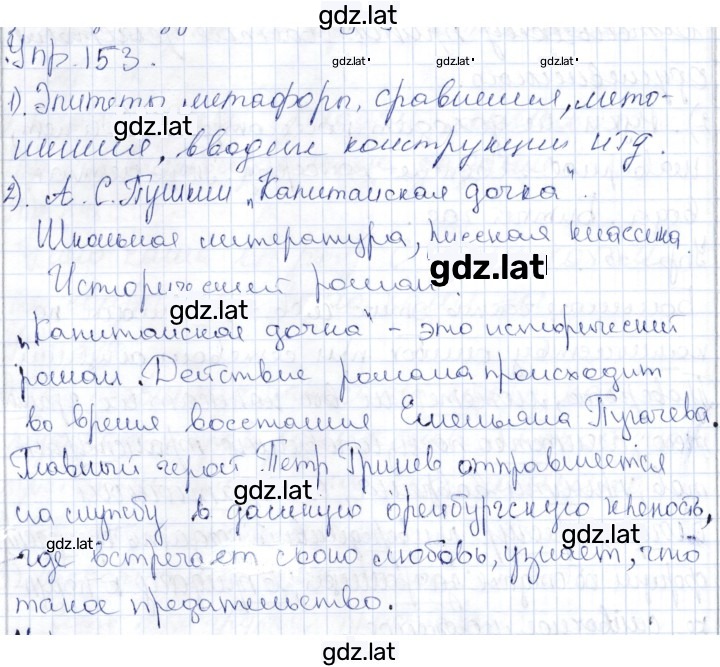 gdz.lat
Упр. 153.
gdz.lat gdz.lat gdz.lat
1). Эпитеты, метафоры, сравнения, мето-
gdz.lat
нимия, вводные конструкции итд.
2). А. С. Пушкин „Капитанская дочка".
Школьная литература, русская классика.
gdz.lat
Исторический роман.
gdz.lat
„Капитанская дочка" - это исторический
роман. Действие романа происходит
во время восстания Емельяна Пугачева.
Главный герой Петр Гринев отправляется
gdz.lat
на службу в далёкую оренбургскую крепость,
gdz.lat gdz.lat
где встречает свою любовь, узнает, что
такое предательство.
gdz.lat